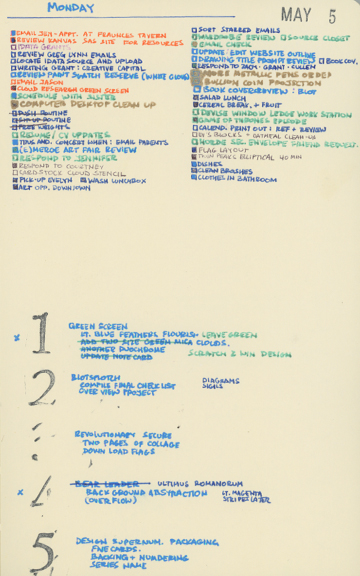 MONDAY
MAY 5
EMAIL JEN - APPT. AT FRAUNCES TAVERN
REVIEW KANVAS SAS SITE FOR RESOURCES
IDATA GRANTS
REVIEW GREG LYNN EMAILS
LOCATE IDATA SOURCE AND UPLOAD
WRITING GRANT: CREATIVE CAPITAL
REVIEW PAINT SWATCH RESERVE (WHITE
EMAIL JASON
CLOUD RESEARCH GREEN SCREEN
SCHEDULE WITH SISTER
COMPUTER DESKTOP CLEAN UP
PUSH ROUTINE
ROUTINE
FREE WEIGHTS
RESUME / CV UPDATES
TIME AND CONCERT WHEN: EMAIL PARENTS
ART FAIR REVIEW
RESPOND TO JENNIFER
RESPOND TO COURTNEY
CARDSTOCK CLOUD STENCIL
PICK-UP EVELYN WASH LUNCHBOX
ART OPP. DOWNTOWN
SORT STARRED EMAILS
REVIEW SOURCE CLOSET
EMAIL CHECK
UPDATE / EDIT WEBSITE OUTLINE
DRAWING TITLE PROMPT REVIEW BOOK COV.
RESPOND TO ZACH - GRANT - CULLEN
ORDER METALLIC PENS ORDER
BULLION COIN PROJECTION
BOOK COVER REVIEW: BLOT
SALAD LUNCH
CEREAL BREAK. + FRUIT
REVISE WINDOW LEDGE WORK STATION
GAME OF THRONES EPISODE
CALEND. PRINT OUT: REF + REVIEW
OATMEAL CLEAN-UP
SEL ENVELOPE
FLAG LAYOUT
TWIN PEAKS ELLIPTICAL 40 MIN
DISHES
CLEAN BRUSHES
CLOTHES IN BATHROOM
1
GREEN SCREEN
x LT. BLUE FEATHERS FLOURISH - LEAVE GREEN
ADD TWO SIZE GREEN MICA CLOUDS.
ANOTHER DUOCHROME
UPDATE NOTE CARD SCRATCH 3 MIN DESIGN
2
BLOTSPLOTCH DIAGRAMS
COMPILE FINAL CHECK LIST SIGILS
OVER VIEW PROJECT
REVOLUTIONARY SECURE
TWO PAGES OF COLLAGE
DOWN LOAD FLAGS
4
BEAR LEADER ULTIMUS ROMANORUM
x BACKGROUND ABSTRACTION LT. MAGENTA
(OVERFLOW) STRIPES LATER
5
DESIGN SUPERNUM. PACKAGING
FNE CARDS.
BACKING + NUMBERING
SERIES NAME